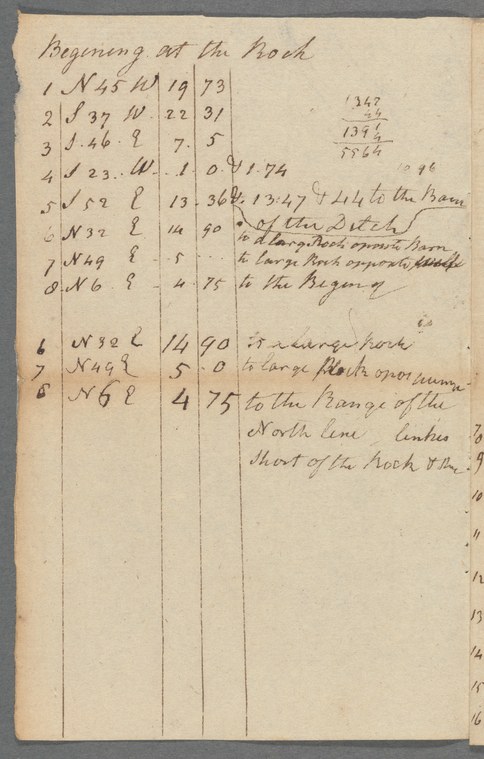 Begening at the Rock
1 N 45 W 19 73
2 S 37 W. 22 31
3 S. 46. E 7. 5
4 S 23.. W. 1. 0. & 1.74
5 S 52 E 13. 36 & 13:47 & 44 to the Barn
of the Ditch
6 N 32 E 14 90 to a large Rock oposite Barn
7 N 49 E - 5 to large Rock opposite
8. N 6. E - 4. 75 to the Begening
1347
44
1391
4
5564
10 96
6 N 32 E 14 90 to a Large Rock
7 N 49 E 5. 0 to large Rock opos
8 N 6 E 4 75 to the Range of the
North line, links
short of the Rock &
9
10
11
12
13
14
15
16